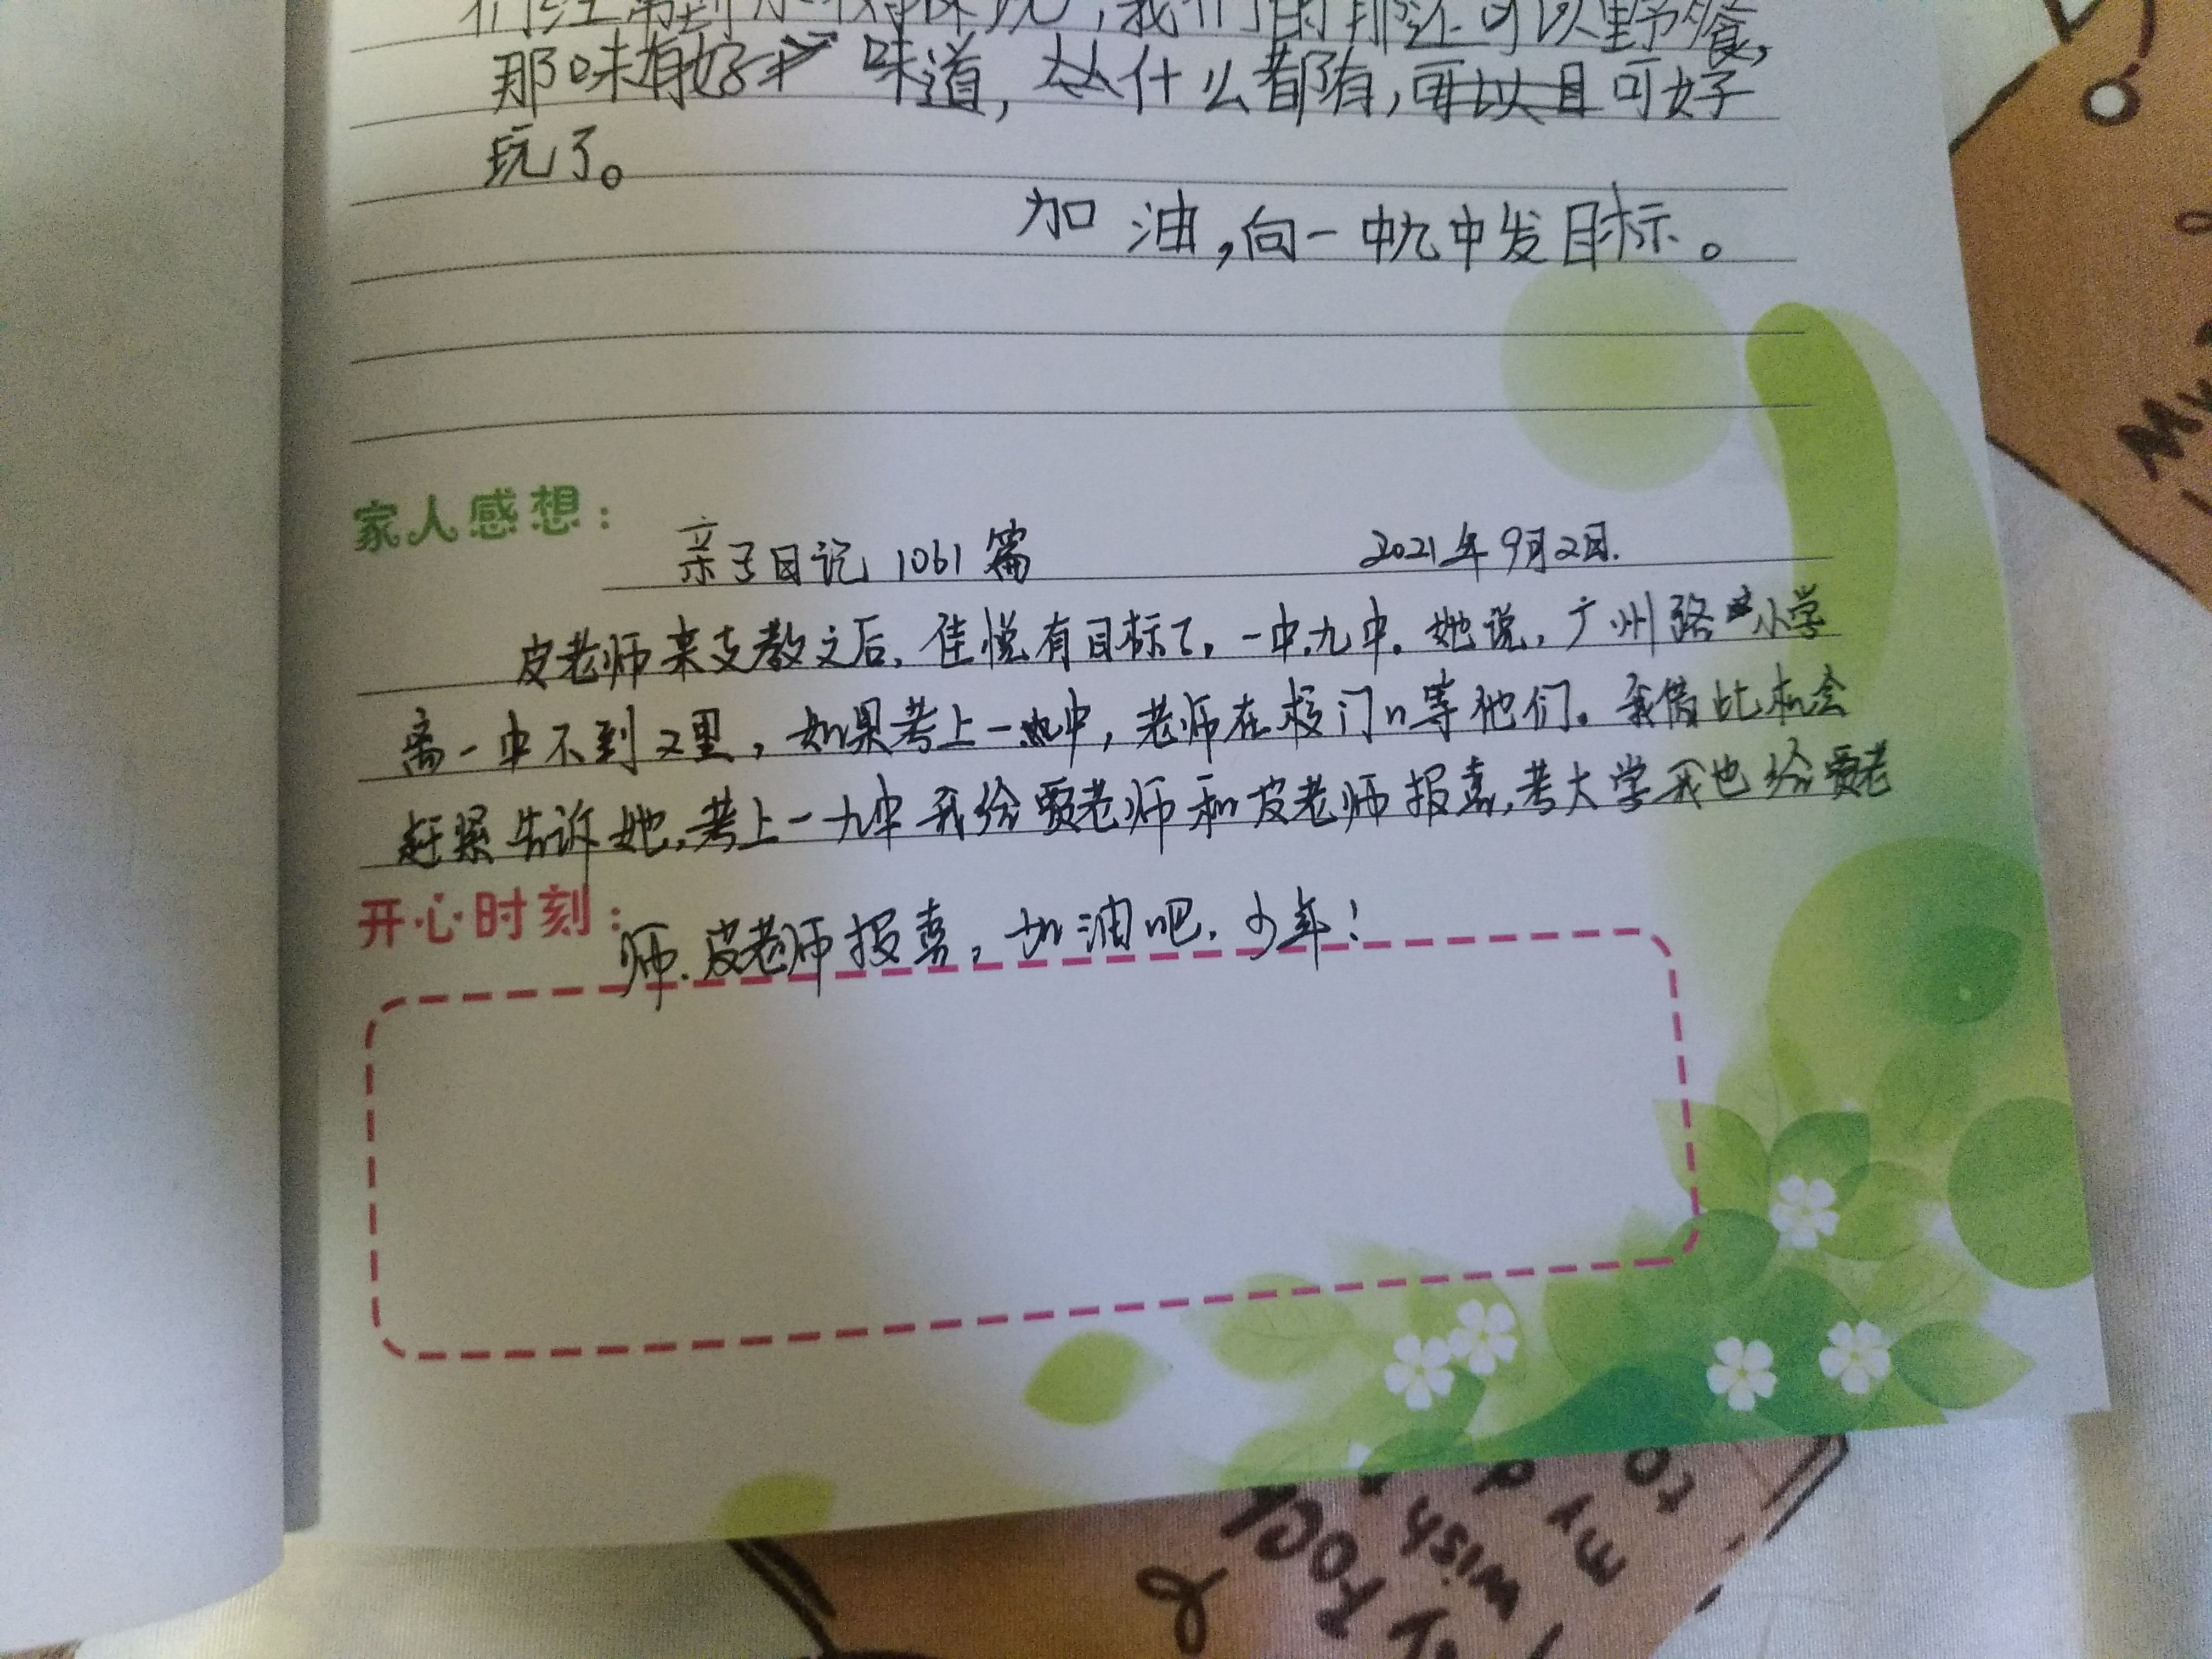 我们的那还可以野餐,
那味有好 味道,什么都有,可好
玩了。
加油,向一中九中发目标。
家人感想:
亲子日记1061篇 2021年9月2日.
皮老师来支教之后,佳悦有目标了,一中.九中.她说,广州路小学
离一中不到2里,如果考上一九中,老师在校门口等他们。我借此机会
赶紧告诉她,考上一九中我给贾老师和皮老师报喜,考大学我也给贾老
开心时刻:
师.皮老师报喜,加油吧,少年!
My
to
my a
wish
Foch